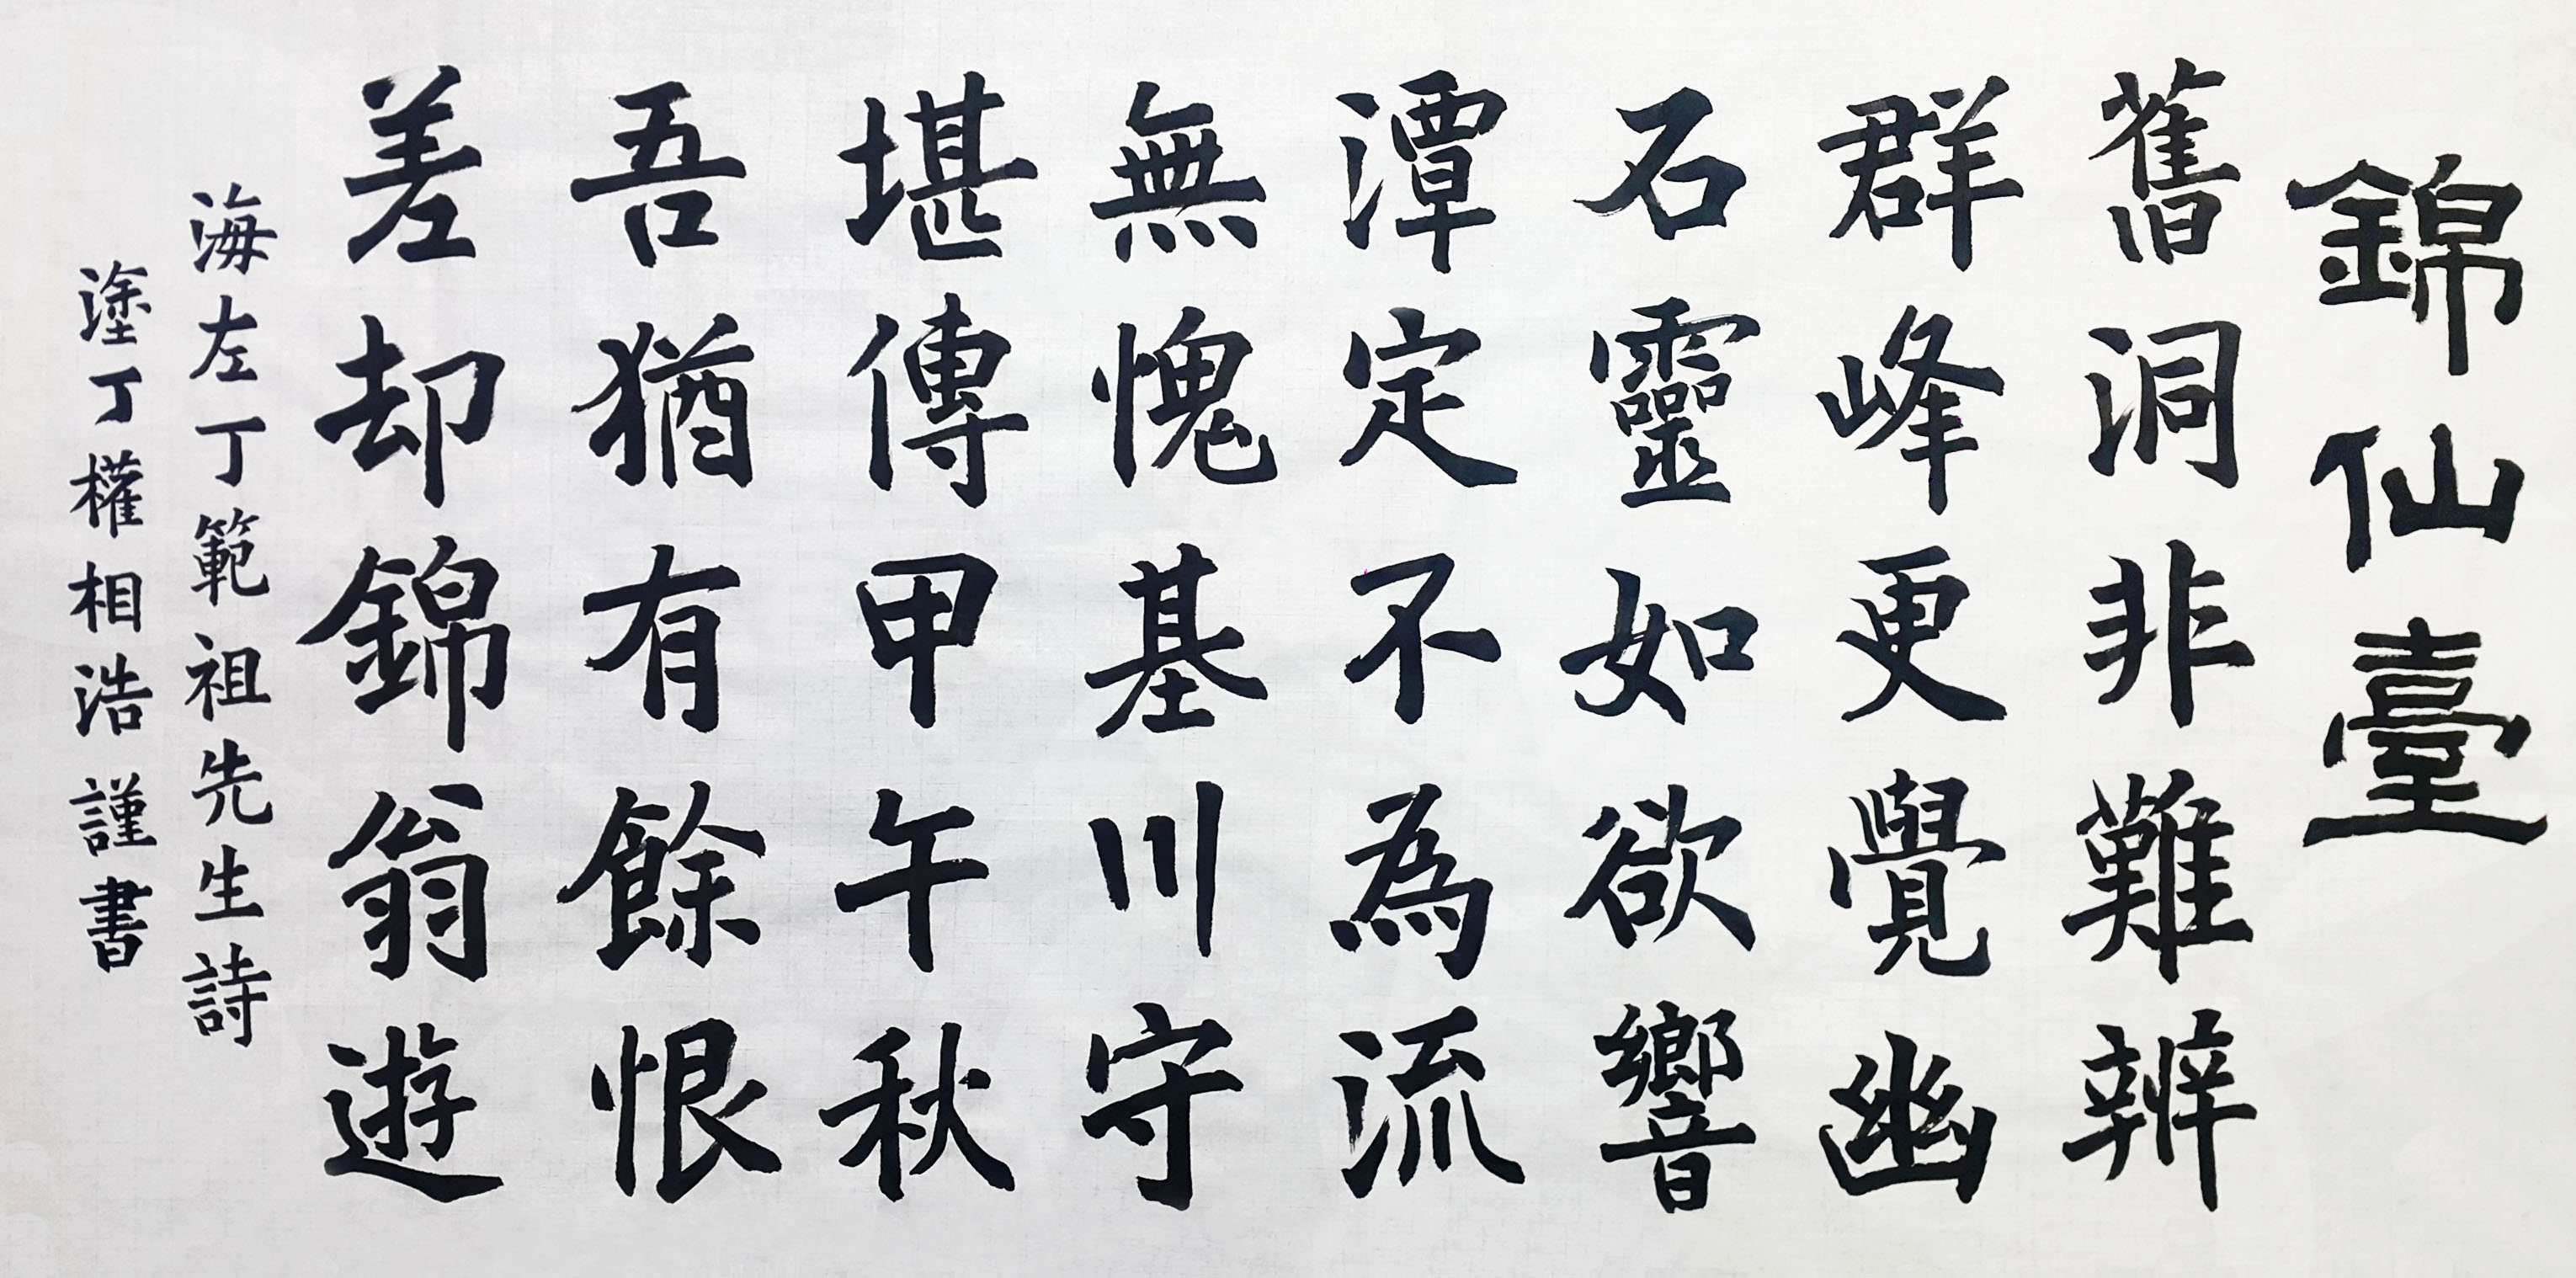 錦仙臺
舊洞非難辨
群峰更覺幽
石靈如欲響
潭定不為流
無愧基川守
堪傳甲午秋
吾猶有餘恨
差却錦翁遊
海左丁範祖先生詩
塗丁權相浩謹書